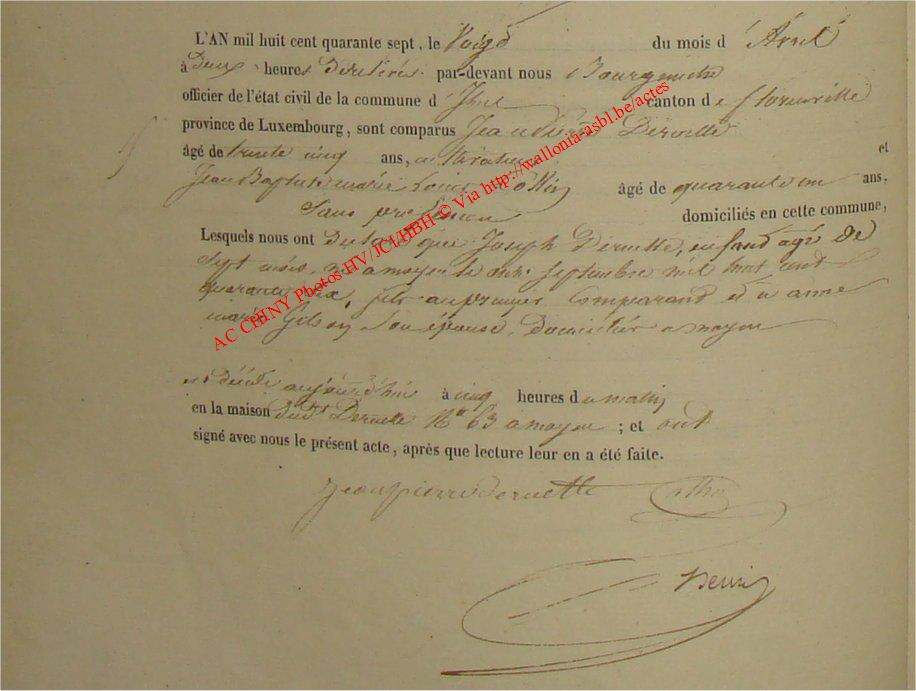 L'AN mil huit cent quarante sept, le Vingt du mois d'Avril
à Deux heures Du soir par-devant nous Bourgmestre
officier de l'état civil de la commune d' canton de florenville
province de Luxembourg, sont comparus Jean Pierre Deruette
âgé de trente cinq ans, et
Jean Baptiste marie Louis âgé de quarante un ans,
Sans profession domiciliés en cette commune,
Lesquels nous ont Déclaré que Joseph Deruette, enfant agé de
sept mois, né a moyen le onze septembre mil huit cent
quarante six, fils au premier Comparant et a anne
marie Gilson Son épouse, Domiciliés a moyen
est décédé aujourd'hui à cinq heures du matin
en la maison dudt Deruette No 63 a moyen ; et ont
signé avec nous le présent acte, après que lecture leur en a été faite.
Jean pierre deruette
AC CHINY Photos HV/JCLHBH © Via http://wallonia-asbl.be/actes